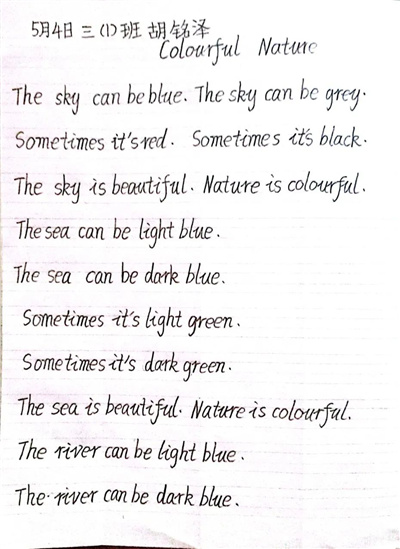 5月4日 三(1)班 胡铭泽
Colourful Nature
The sky can be blue. The sky can be grey.
Sometimes it's red. Sometimes it's black.
The sky is beautiful. Nature is colourful.
The sea can be light blue.
The sea can be dark blue.
Sometimes it's light green.
Sometimes it's dark green.
The sea is beautiful. Nature is colourful.
The river can be light blue.
The river can be dark blue.